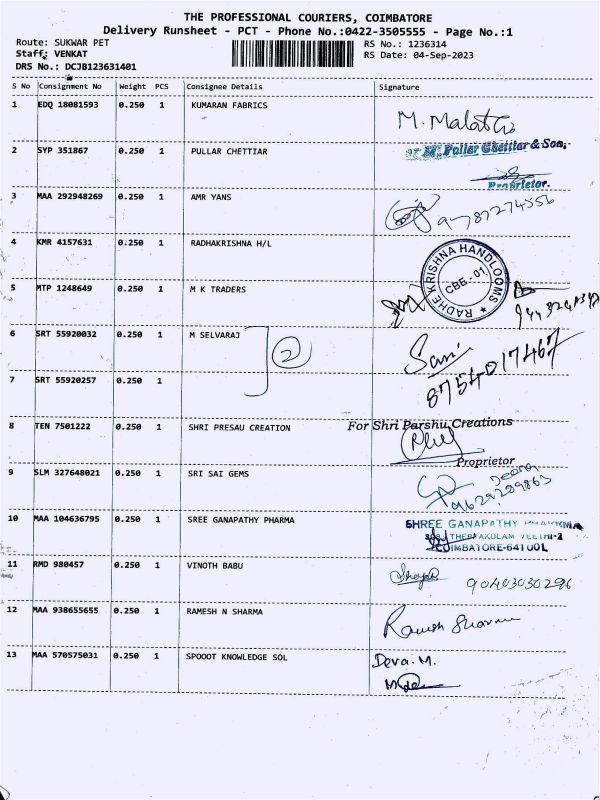 THE PROFESSIONAL COURIERS, COIMBATORE
Delivery Runsheet - PCT - Phone No.:0422-3505555 - Page No.:1
Route: SUKWAR PET
RS No.: 1236314
Staff: VENKAT
RS Date: 04-Sep-2023
DRS No.: DCJB123631401
S No Consignment No Weight PCS Consignee Details Signature
1 EDQ 18081593 0.250 1 KUMARAN FABRICS
M. Malathi
2 SYP 351867 0.250 1 PULLAR CHETTIAR
M. Pullar Chettiar & Son,
Proprietor.
3 MAA 292948269 0.250 1 AMR YANS
4 KMR 4157631 0.250 1 RADHAKRISHNA H/L
RADHE KRISHNA HANDLOOMS
CBE.-01
5 MTP 1248649 0.250 1 M K TRADERS
6 SRT 55920032 0.250 1 M SELVARAJ
2
8754017467
7 SRT 55920257 0.250 1
8 TEN 7501222 0.250 1 SHRI PRESAU CREATION
For Shri Parshu Creations
Proprietor
9 SLM 327648021 0.250 1 SRI SAI GEMS
10 MAA 104636795 0.250 1 SREE GANAPATHY PHARMA
SHREE GANAPATHY PHARMA
COIMBATORE-641001.
11 RMD 980457 0.250 1 VINOTH BABU
12 MAA 938655655 0.250 1 RAMESH N SHARMA
Ramesh Sharma
13 MAA 570575031 0.250 1 SPOOOT KNOWLEDGE SOL
Deva. M.